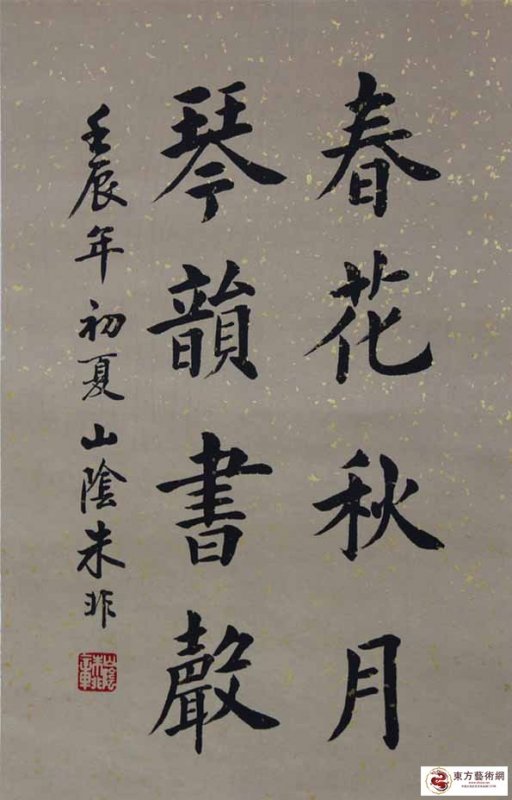 春花秋月
琴韻書聲
壬辰年初夏山陰朱非
東方藝術網